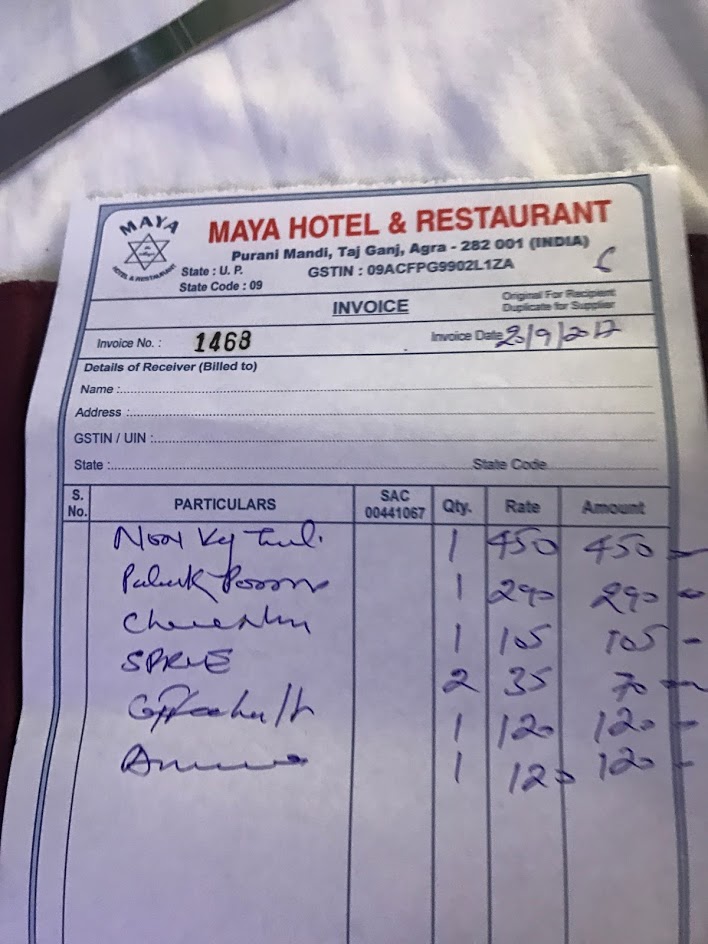 MAYA
HOTEL & RESTAURANT
MAYA HOTEL & RESTAURANT
Purani Mandi, Taj Ganj, Agra - 282 001 (INDIA)
State : U. P. GSTIN : 09ACFPG9902L1ZA
State Code : 09
INVOICE Original For Recipient
Duplicate for Supplier
Invoice No. : 1468 Invoice Date
Details of Receiver (Billed to)
Name :
Address :
GSTIN / UIN :
State : State Code
S. No. PARTICULARS SAC 00441067 Qty. Rate Amount
Non Veg 1 450 450
Palak 1 290 290
1 105 105
SPRITE 2 35 70
1 120 120
1 120 120